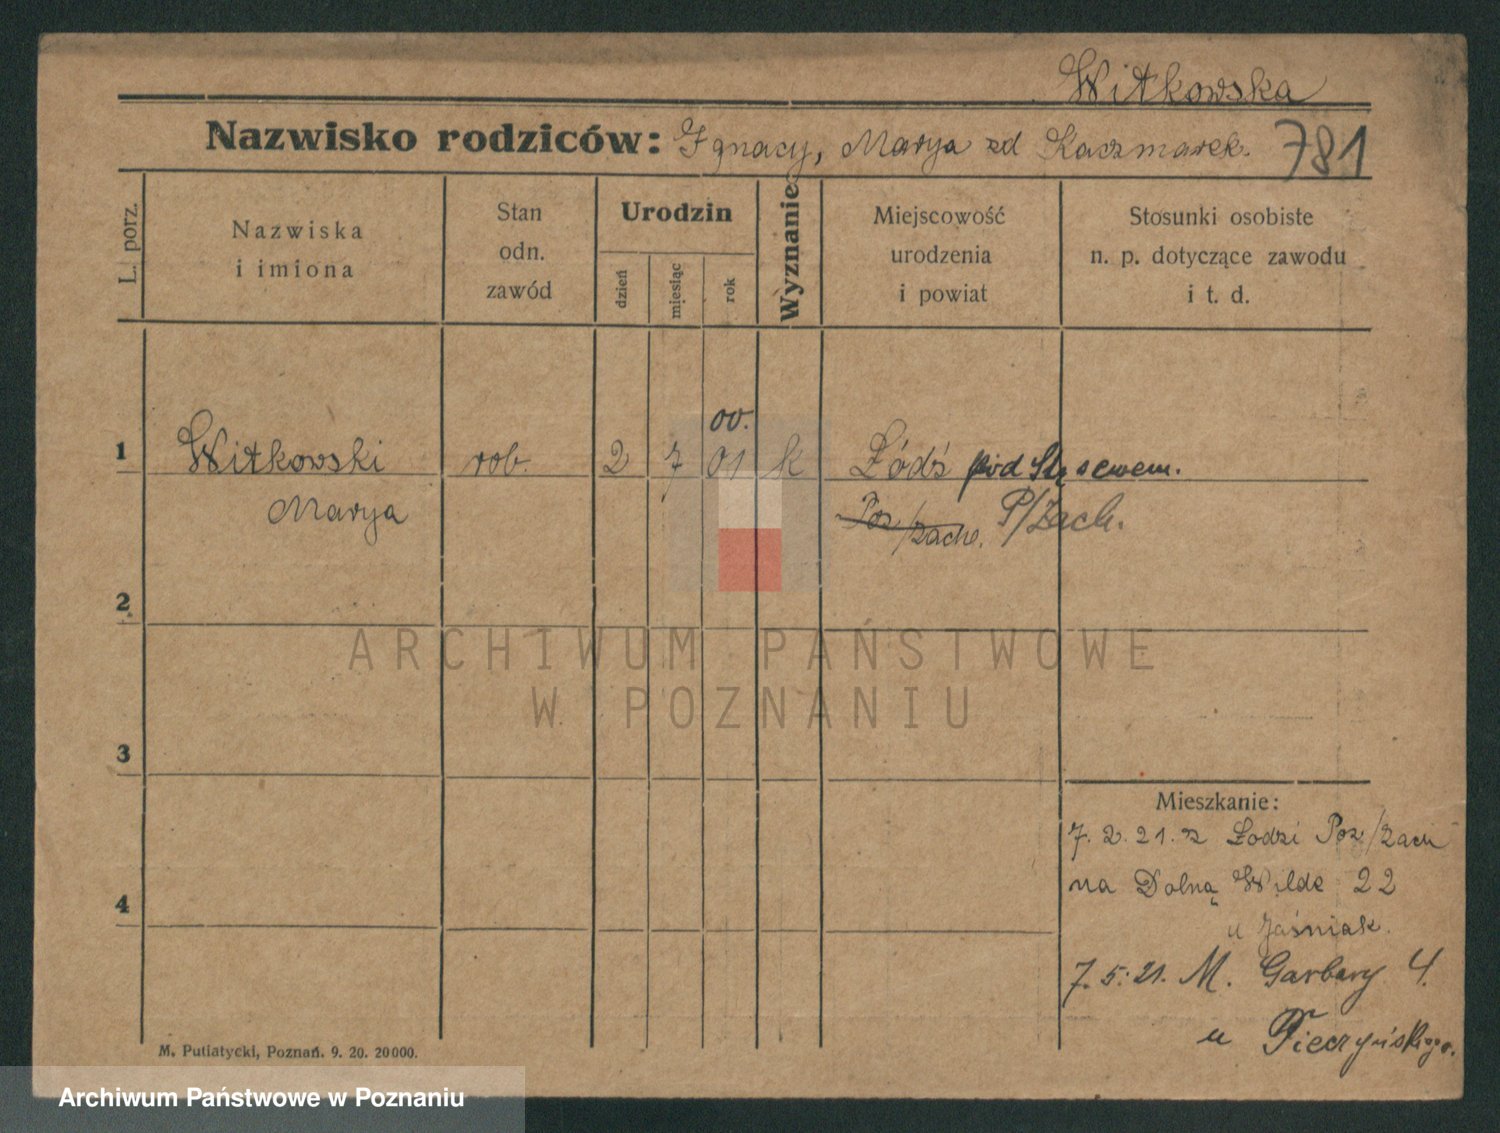 Witkowska
Nazwisko rodziców: Ignacy, Marya zd Kaczmarek.
781
L. porz.
Nazwiska
i imiona
Stan
odn.
zawód
Urodzin
dzień
miesiąc
rok
Wyznanie
Miejscowość
urodzenia
i powiat
Stosunki osobiste
n. p. dotyczące zawodu
i t. d.
00.
1 Witkowski rob. 2 7 01 k Łódź pod Stęszewem.
Marya Poz/zach. P/Zach.
2
ARCHIWUM PAŃSTWOWE
W POZNANIU
3
Mieszkanie:
7. 2. 21. z Łodzi Poz/zach
na Dolną Wilde 22
4
u Jaśniak.
7. 5. 21. M. Garbary 4.
u
M. Putiatycki, Poznań. 9. 20. 20000.
Archiwum Państwowe w Poznaniu